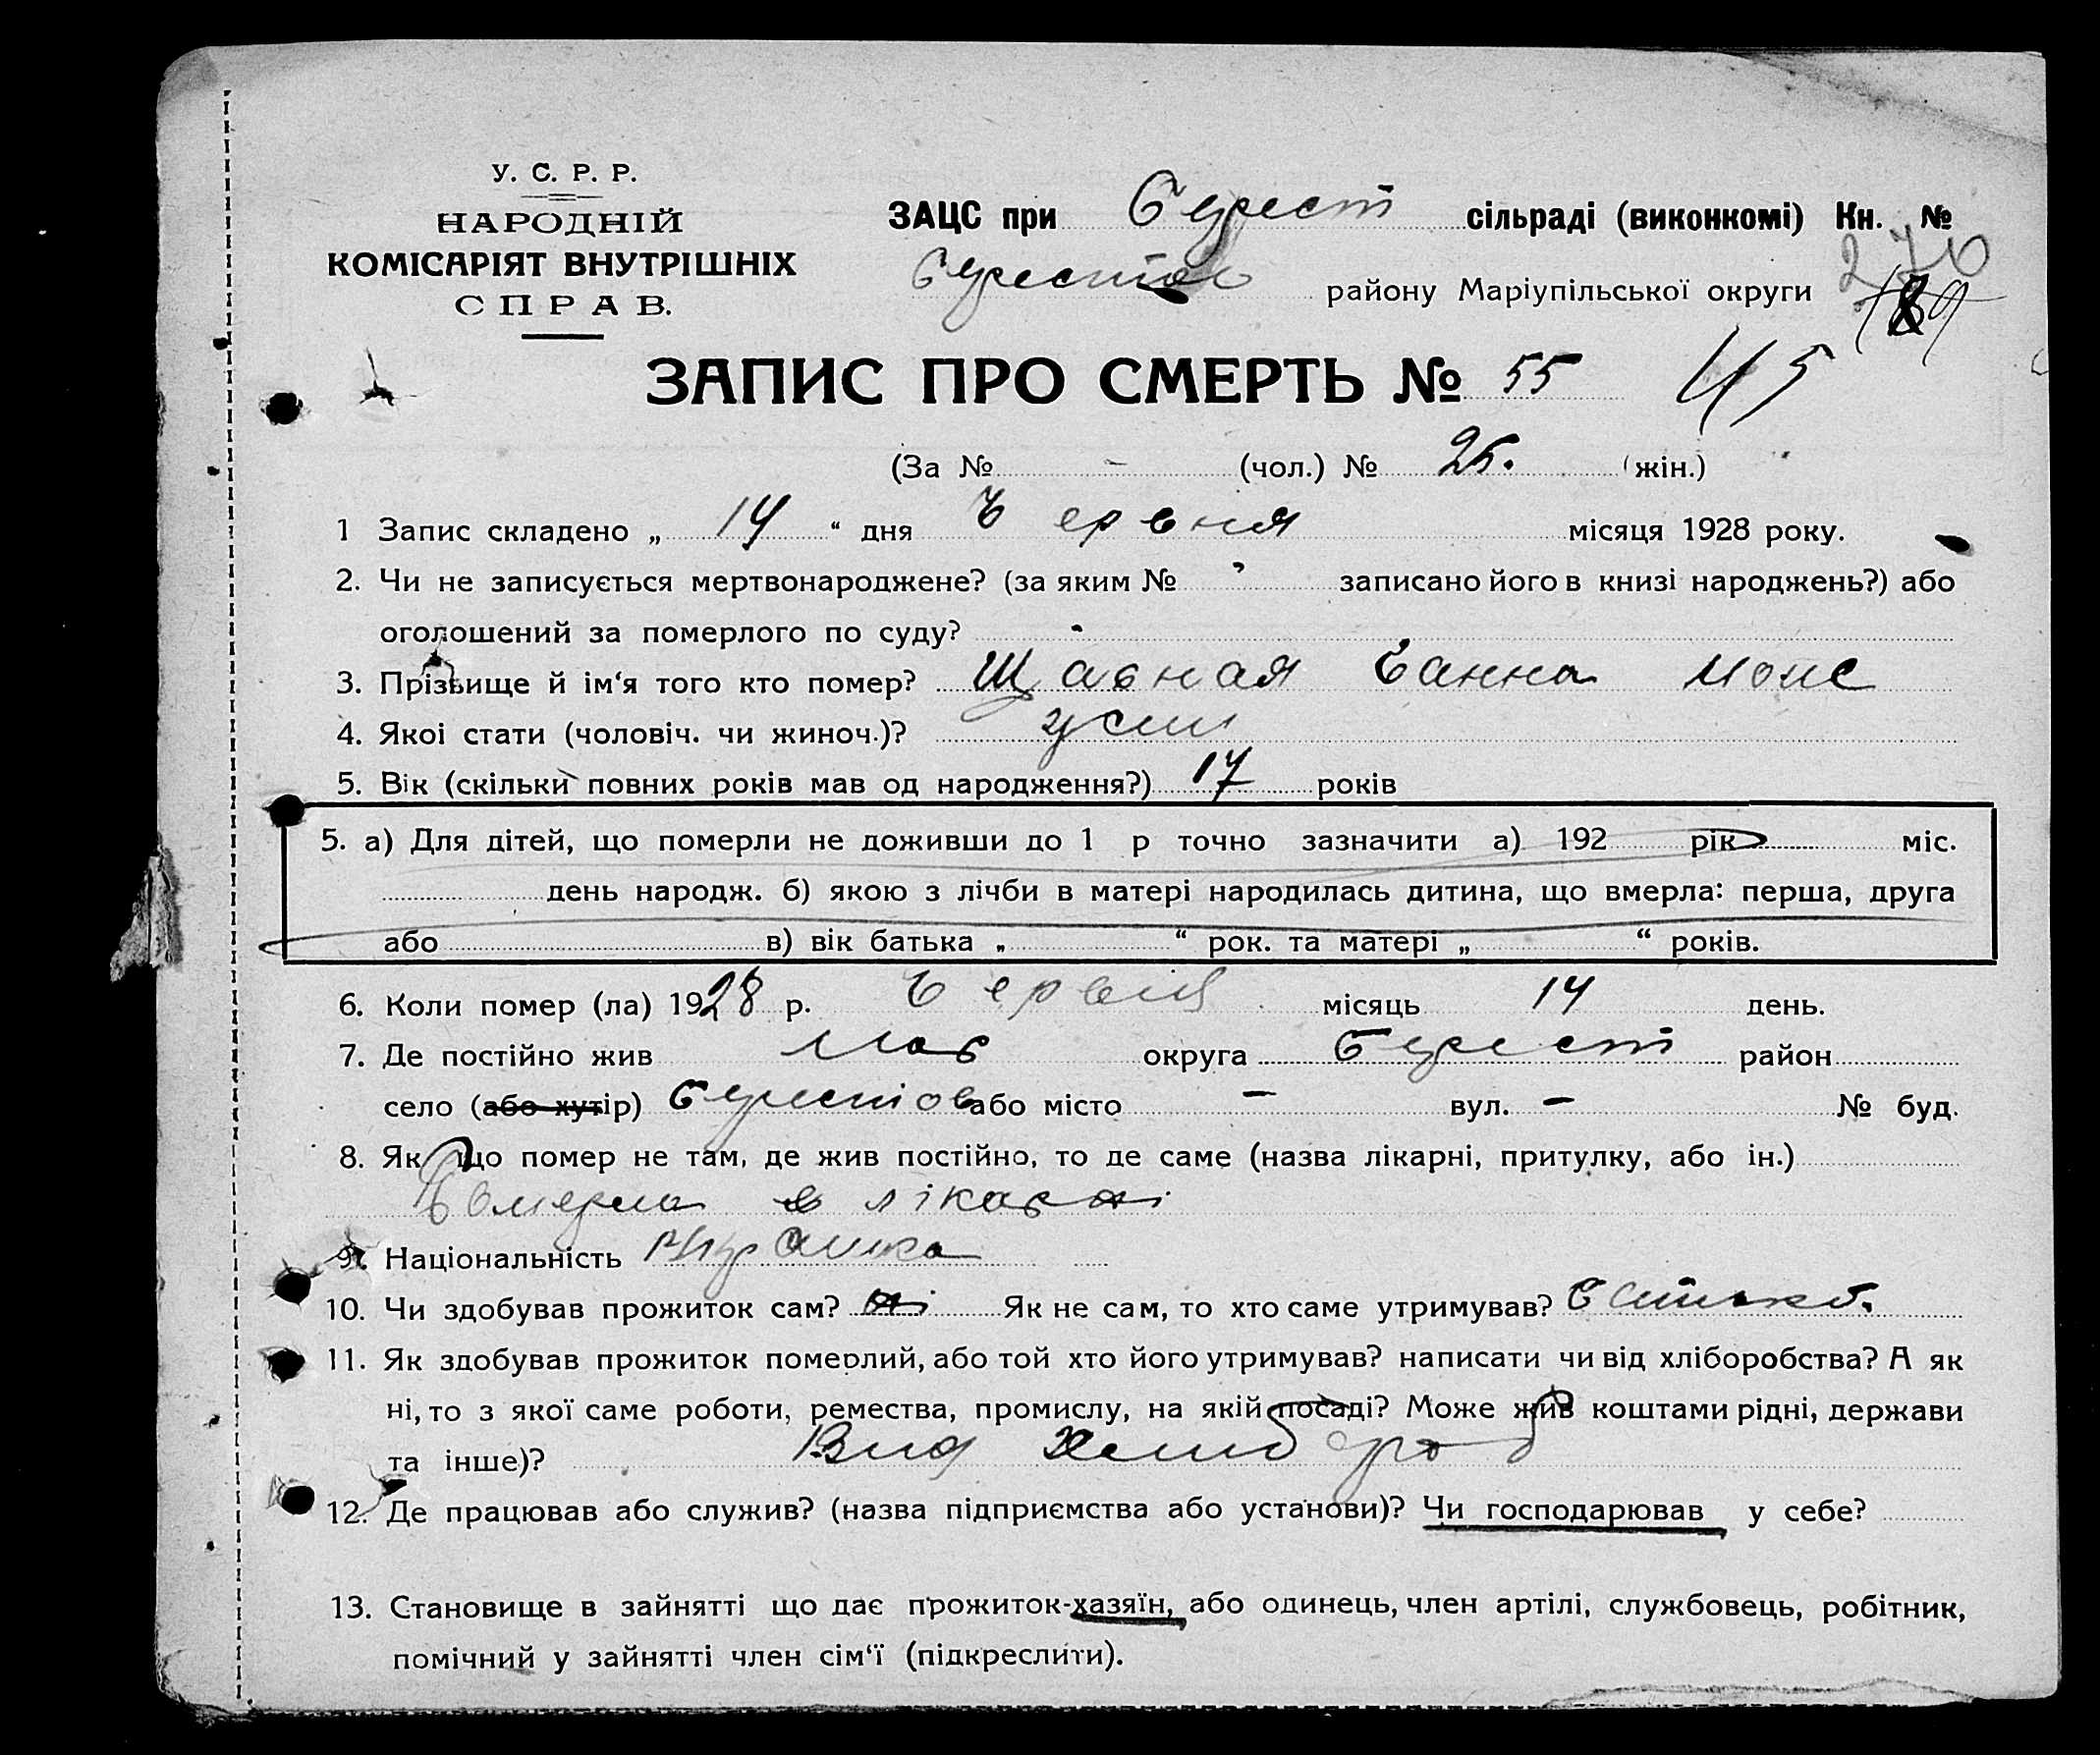 У. С. Р. Р.
НАРОДНІЙ
КОМІСАРІЯТ ВНУТРІШНІХ
СПРАВ.
ЗАЦС при Берест сільраді (виконкомі) Кн. №
270
Берестов району Маріупільської округи
189
ЗАПИС ПРО СМЕРТЬ № 55 45
(За № - (чол.) № 25. (жін.)
1 Запис складено „ 14 “ дня Червня місяця 1928 року.
2. Чи не записується мертвонароджене? (за яким № записано його в книзі народжень?) або
оголошений за померлого по суду?
3. Прізвище й ім‘я того кто помер? Щавная Ганна
4. Якоі стати (чоловіч. чи жиноч.)?
5. Вік (скільки повних років мав од народження?) 17 років
5. а) Для дітей, що померли не доживши до 1 р точно зазначити а) 192 рік міс.
день народж. б) якою з лічби в матері народилась дитина, що вмерла: перша, друга
або в) вік батька „ “ рок. та матері „ “ років.
6. Коли помер (ла) 1928 р. Червня місяць 14 день.
7. Де постійно жив Мар округа Берест район
село (або хутір) Берестов або місто - вул. - № буд.
8. Як що помер не там, де жив постійно, то де саме (назва лікарні, притулку, або ін.)
Вмерла в лікарні
9. Національність Українка
10. Чи здобував прожиток сам? ні Як не сам, то хто саме утримував? батько.
11. Як здобував прожиток померлий, або той хто його утримував? написати чи від хліборобства? А як
ні, то з якої саме роботи, ремества, промислу, на якій посаді? Може жив коштами рідні, держави
та інше)? Вид хлибороб
12. Де працював або служив? (назва підприємства або установи)? Чи господарював у себе?
13. Становище в зайнятті що дає прожиток-хазяїн, або одинець, член артілі, службовець, робітник,
помічний у зайнятті член сім‘ї (підкреслити).